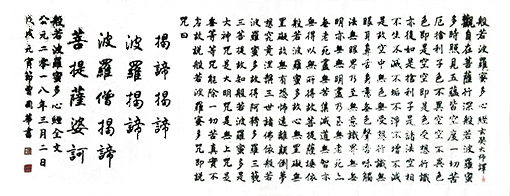 般若波羅蜜多心經 玄奘大師譯
觀自在菩薩行深般若波羅蜜
多時照見五蘊皆空度一切苦
厄舍利子色不異空空不異色
色即是空空即是色受想行識
亦復如是舍利子是諸法空相
不生不滅不垢不淨不增不減
是故空中無色無受想行識無
眼耳鼻舌身意無色聲香味觸
法無眼界乃至無意識界無無
明亦無無明盡乃至無老死亦
無老死盡無苦集滅道無智亦
無得以無所得故菩提薩埵依
般若波羅蜜多故心無罣礙無
罣礙故無有恐怖遠離顛倒夢
想究竟涅槃三世諸佛依般若
波羅蜜多故得阿耨多羅三藐
三菩提故知般若波羅蜜多是
大神咒是大明咒是無上咒是
無等等咒能除一切苦真實不
虛故說般若波羅蜜多咒即說
咒曰
揭諦揭諦
波羅揭諦
波羅僧揭諦
菩提薩婆訶
般若波羅蜜多心經全文
公元二〇一八年三月二日
戊戌元宵節曹國華書